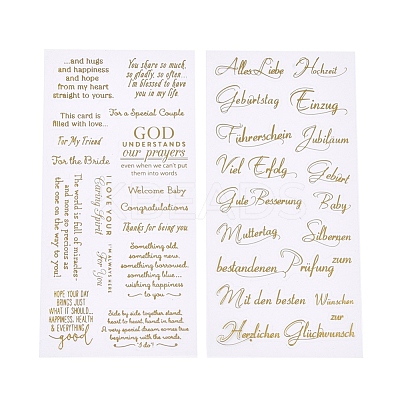 ...and hugs
and happiness
and hope
from my heart
straight to yours.
This card is
filled with love...
For My Friend
For the Bride
The world is full of miracles-
and none so precious as
the one on the way to you!
I LOVE YOUR
Caring Spirit
I'M ALWAYS HERE
For You
HOPE YOUR DAY
BRINGS JUST
WHAT IT SHOULD...
HAPPINESS, HEALTH
& EVERYTHING
good
You share so much,
so gladly, so often...
I'm blessed to have
you in my life
For a Special Couple
GOD
UNDERSTANDS
our prayers
even when we can't put
them into words
Welcome Baby
Congratulations
Thanks for being you
Something old,
something new,
something borrowed,
something blue...
wishing happiness
to you
Side by side together stand,
heart to heart, hand in hand.
A very special dream comes true
beginning with the words,
"I do"!
Alles Liebe
Hochzeit
Geburtstag
Einzug
Führerschein
Jubiläum
Viel Erfolg
Geburt
Gute Besserung
Baby
Muttertag
Silbernen
bestandenen Prüfung zum
Mit den besten Wünschen
zur
Herzlichen Glückwunsch